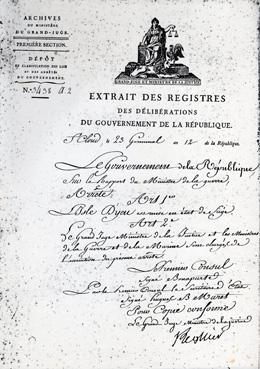 ARCHIVES
DU MINISTÈRE
DU GRAND-JUGE.
PREMIÈRE SECTION.
DÉPÔT
ET CLASSIFICATION DES LOIS
ET DES ARRÊTÉS
DU GOUVERNEMENT.
N.º 3438 A.2
EXTRAIT DES REGISTRES
DES DÉLIBÉRATIONS
DU GOUVERNEMENT DE LA RÉPUBLIQUE.
23 Germinal an 12 de la République.
Le Gouvernement de la République,
Sur le Rapport du Ministre de la guerre,
Arrête
Art 1er
L'Isle est mise en état de Siège.
Art 2e
Le Grand Juge Ministre de la Justice et les Ministres
de la Guerre et de la Marine sont chargés de
l'exécution du présent arrêté
Le Premier Consul
Signé Bonaparte
Par le Premier Consul, le Secrétaire d'État
Signé hugues B. Maret
Pour Copie conforme
Le Grand Juge Ministre de la justice